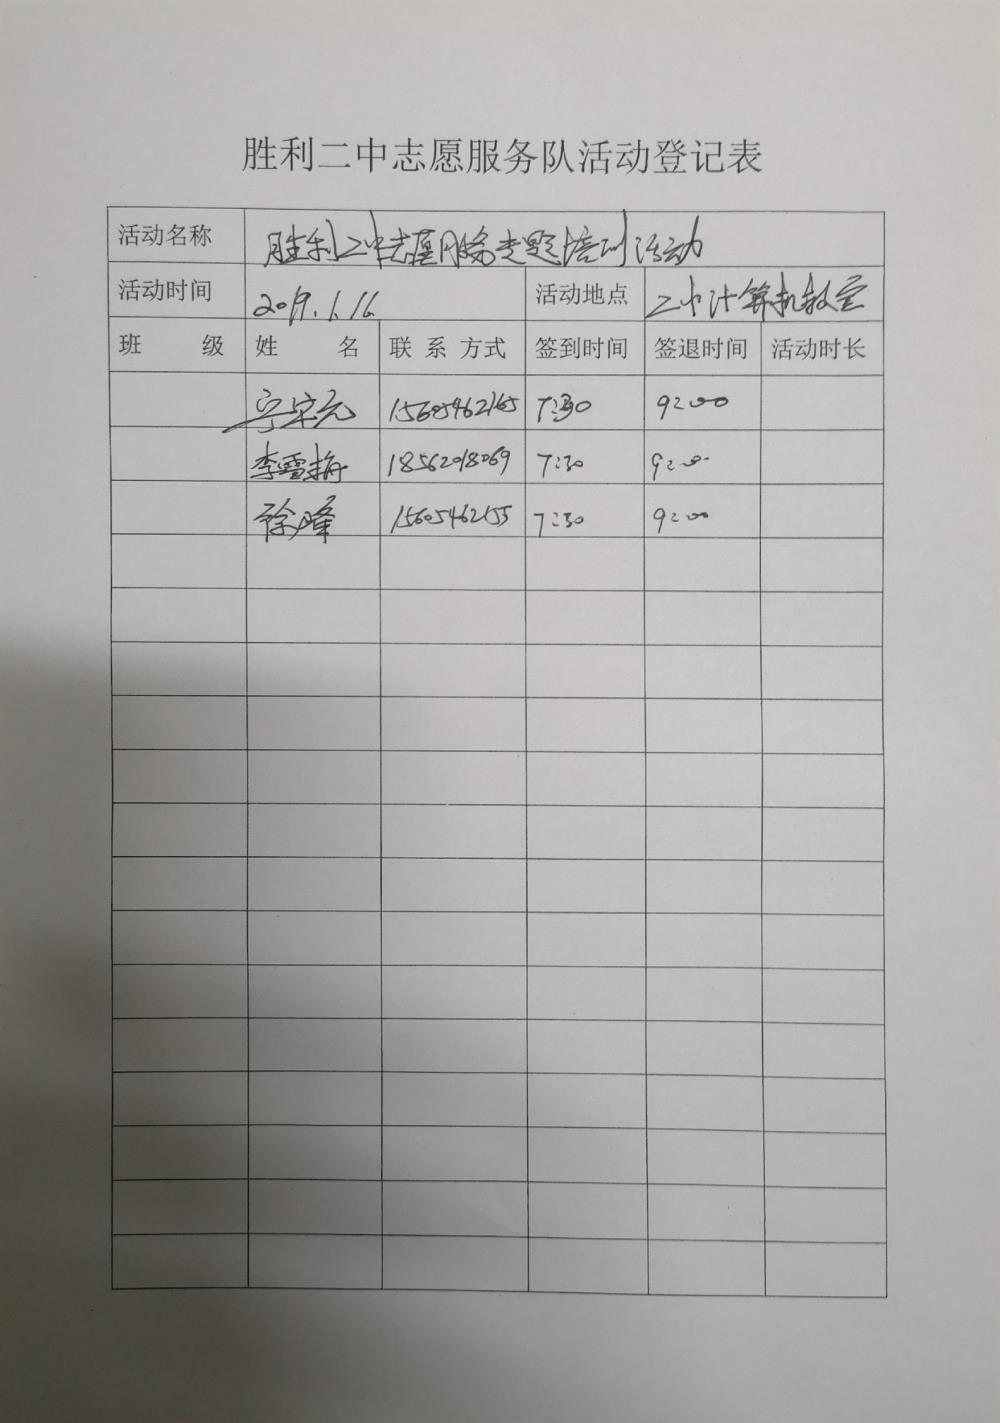 胜利二中志愿服务队活动登记表
活动名称 胜利二中志愿服务专题培训活动
活动时间 2019.1.16 活动地点 二中计算机教室
班 级 姓 名 联 系 方式 签到时间 签退时间 活动时长
15605462165 7:30 9:00
李雪梅 18562018069 7:30 9:00
徐峰 15605462155 7:30 9:00